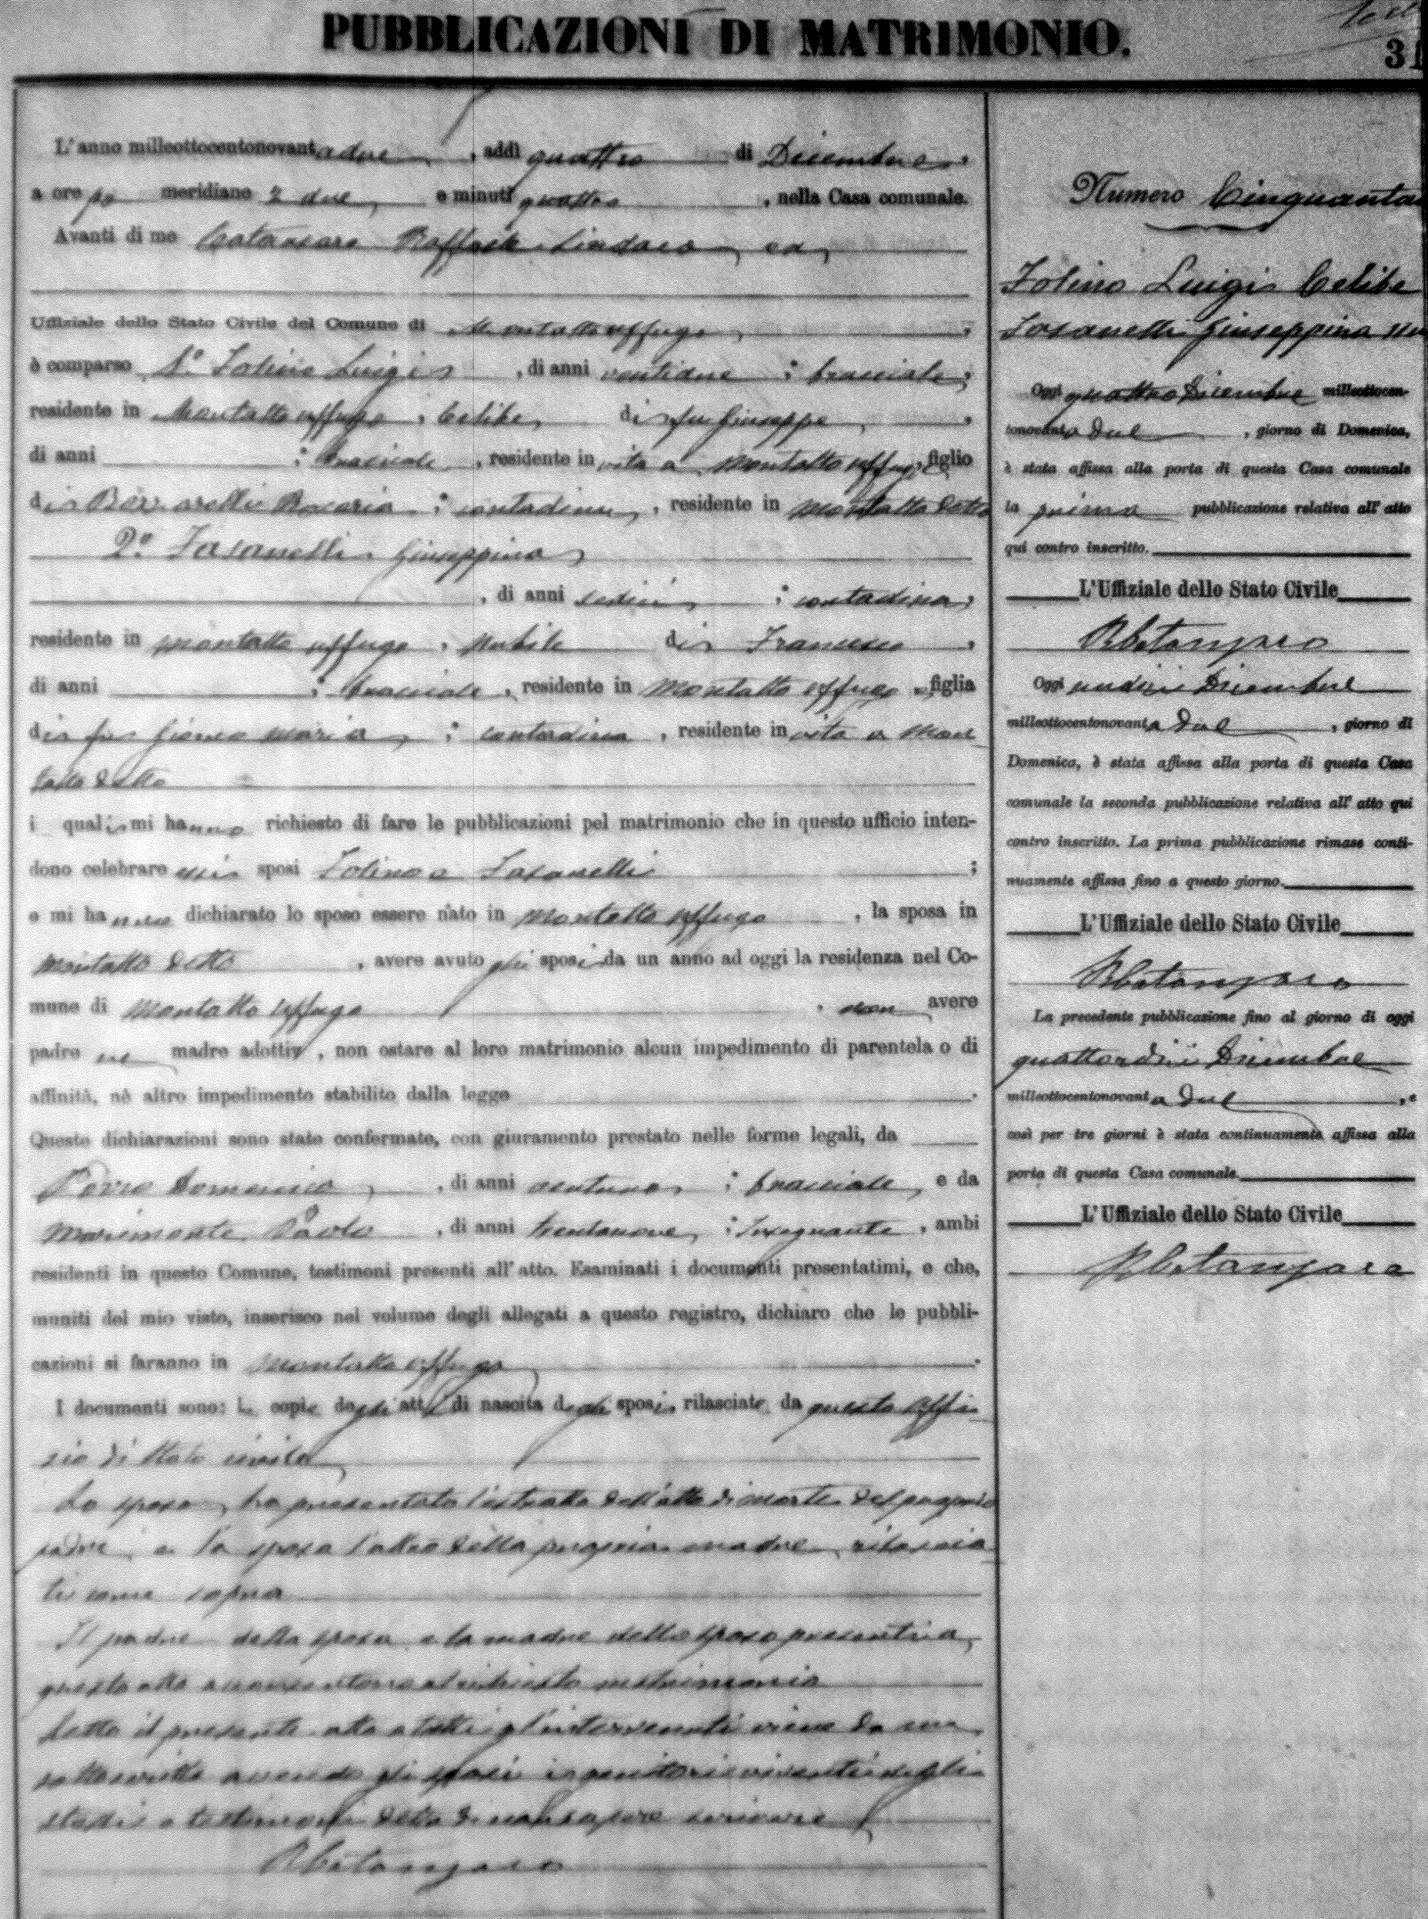 PUBBLICAZIONI DI MATRIMONIO.
31
L'anno milleottocentonovantadue, addì quattro di Dicembre,
a ore po meridiane 2 due, e minuti quattro, nella Casa comunale.
Avanti di me Catanzaro Raffaele Sindaco, ed
Uffiziale dello Stato Civile del Comune di Montalto uffugo,
è comparso 1.° Folino Luigi, di anni ventidue; bracciale,
residente in Montalto uffugo, celibe, di fu Giuseppe,
di anni ; bracciale, residente in vita a Montalto uffugo, figlio
di Rosaria; contadina, residente in Montalto detto
2.° Fasanelli Giuseppina
, di anni sedici; contadina,
residente in Montalto uffugo, nubile di Francesco,
di anni ; bracciale, residente in Montalto uffugo, figlia
di fu Maria; contadina, residente in vita a Mon-
talto detto
i quali mi hanno richiesto di fare le pubblicazioni pel matrimonio che in questo ufficio inten-
dono celebrare essi sposi Folino e Fasanelli;
e mi hanno dichiarato lo sposo essere nato in Montalto uffugo, la sposa in
Montalto detto, avere avuto gli sposi da un anno ad oggi la residenza nel Co-
mune di Montalto uffugo, non avere
padre ne madre adottiv, non ostare al loro matrimonio alcun impedimento di parentela o di
affinità, nè altro impedimento stabilito dalla legge.
Queste dichiarazioni sono state confermate, con giuramento prestato nelle forme legali, da
Domenico, di anni ventuno; bracciale, e da
Paolo, di anni trentanove; Insegnante, ambi
residenti in questo Comune, testimoni presenti all'atto. Esaminati i documenti presentatimi, e che,
muniti del mio visto, inserisco nel volume degli allegati a questo registro, dichiaro che le pubbli-
cazioni si faranno in Montalto uffugo.
I documenti sono: le copie degli atti di nascita degli sposi rilasciate da questo Uffi-
zio di Stato civile
Lo sposo ha presentato l'estratto dell'atto di morte del proprio
padre, e la sposa l'altro della propria madre, rilascia-
ti come sopra
Il padre della sposa e la madre dello sposo presenti a
questo atto acconsentono al richiesto matrimonio
Letto il presente atto a tutti gl'intervenuti viene da me
sottoscritto avendo gli sposi i genitori viventi degli
stessi e testimoni detto di non sapere scrivere
RCatanzaro
Numero Cinquanta
Folino Luigi Celibe
Fasanelli Giuseppina
Oggi quattro Dicembre milleottocen-
tonovantadue, giorno di Domenica,
è stata affissa alla porta di questa Casa comunale
la prima pubblicazione relativa all'atto
qui contro inscritto.
L'Uffiziale dello Stato Civile
RCatanzaro
Oggi undici Dicembre
milleottocentonovantadue, giorno di
Domenica, è stata affissa alla porta di questa Casa
comunale la seconda pubblicazione relativa all'atto qui
contro inscritto. La prima pubblicazione rimase conti-
nuamente affissa fino a questo giorno.
L'Uffiziale dello Stato Civile
RCatanzaro
La precedente pubblicazione fino al giorno di oggi
quattordici Dicembre
milleottocentonovantadue, e
così per tre giorni è stata continuamente affissa alla
porta di questa Casa comunale.
L'Uffiziale dello Stato Civile
RCatanzaro